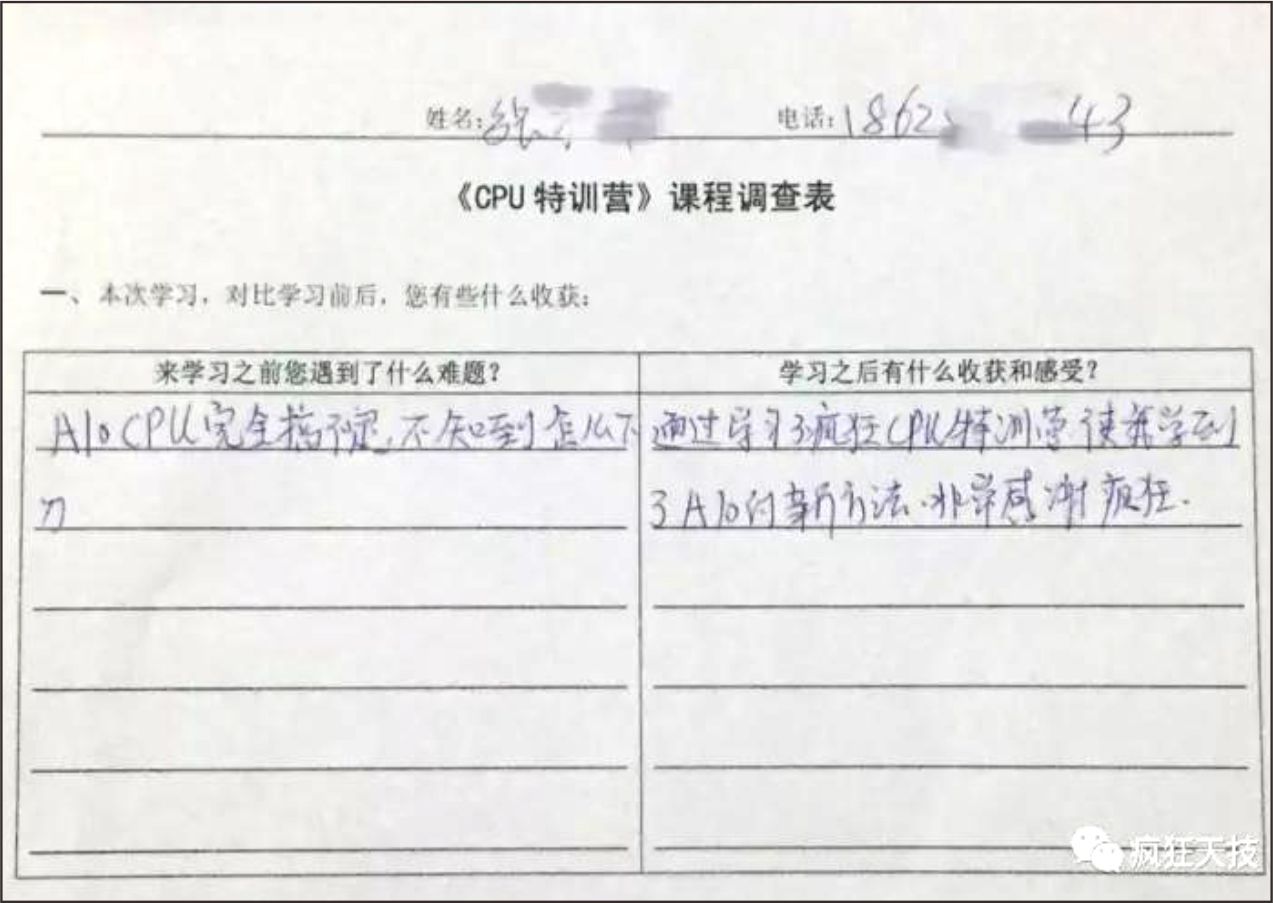 姓名: 电话:1862 43
《CPU特训营》课程调查表
一、本次学习，对比学习前后，您有些什么收获：
来学习之前您遇到了什么难题？ 学习之后有什么收获和感受？
A10CPU完全搞不定,不知到怎么下 通过学习了疯狂CPU特训营使我学到
刀 了A10的新方法.非常感谢疯狂.
疯狂天技